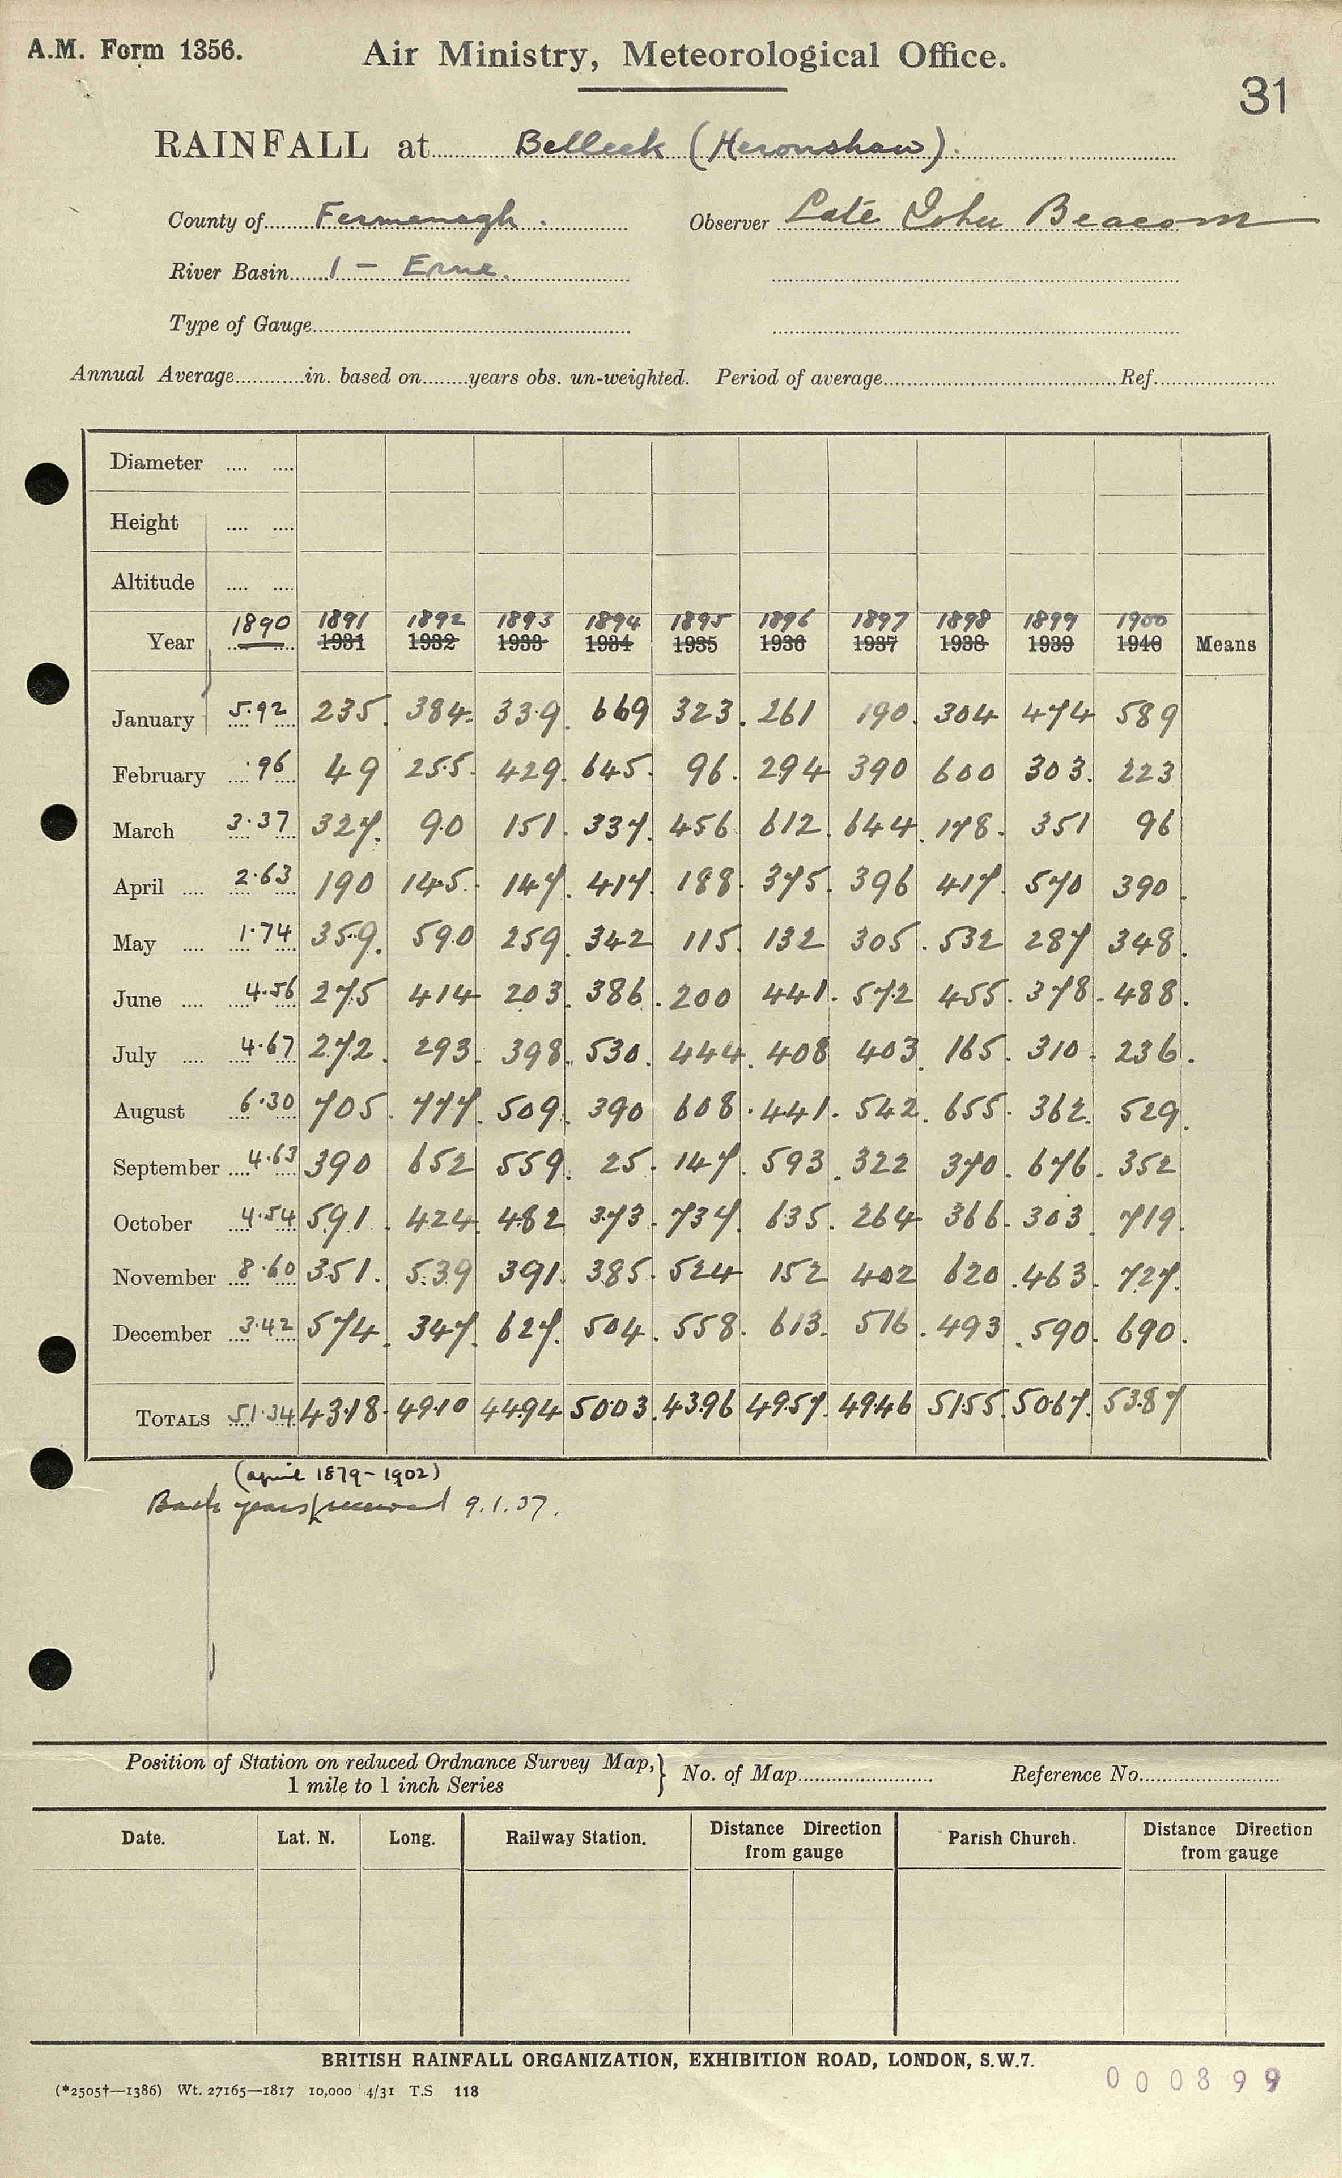 A.M. Form 1356.
Air Ministry, Meteorological Office.
31
RAINFALL at Belleek (Heronshaw).
County of Fermanagh. Observer Late John Beacom
River Basin 1 - Erne.
Type of Gauge
Annual Average in. based on years obs. un-weighted. Period of average Ref.
Diameter
Height
Altitude
1890 1891 1892 1893 1894 1895 1896 1897 1898 1899 1900
Year 1931 1932 1933 1934 1935 1936 1937 1938 1939 1940 Means
January 5.92 235 384 339 669 323 261 190 304 474 589
February .96 49 255 429 645 96 294 390 600 303 223
March 3.37 327 90 151 337 456 612 644 178 351 96
April 2.63 190 145 147 417 188 375 396 417 570 390
May 1.74 359 590 259 342 115 132 305 532 287 348
June 4.56 275 414 203 386 200 441 572 455 378 488
July 4.67 272 293 398 530 444 408 403 165 310 236
August 6.30 705 777 509 390 608 441 542 655 362 529
September 4.63 390 652 559 25 147 593 322 370 676 352
October 4.54 591 424 482 373 737 635 264 366 303 719
November 8.60 351 539 391 385 524 152 402 620 463 727
December 3.42 574 347 627 504 558 613 516 493 590 690
TOTALS 51.34 4318 4910 4494 5003 4396 4957 4946 5155 5067 5387
(april 1879-1902)
Back years received 9.1.37.
Position of Station on reduced Ordnance Survey Map, } No. of Map Reference No.
1 mile to 1 inch Series
Date. Lat. N. Long. Railway Station. Distance Direction from gauge Parish Church. Distance Direction from gauge
BRITISH RAINFALL ORGANIZATION, EXHIBITION ROAD, LONDON, S.W.7.
(*2505†—1386) Wt. 27165—1817 10,000 4/31 T.S 118
000899